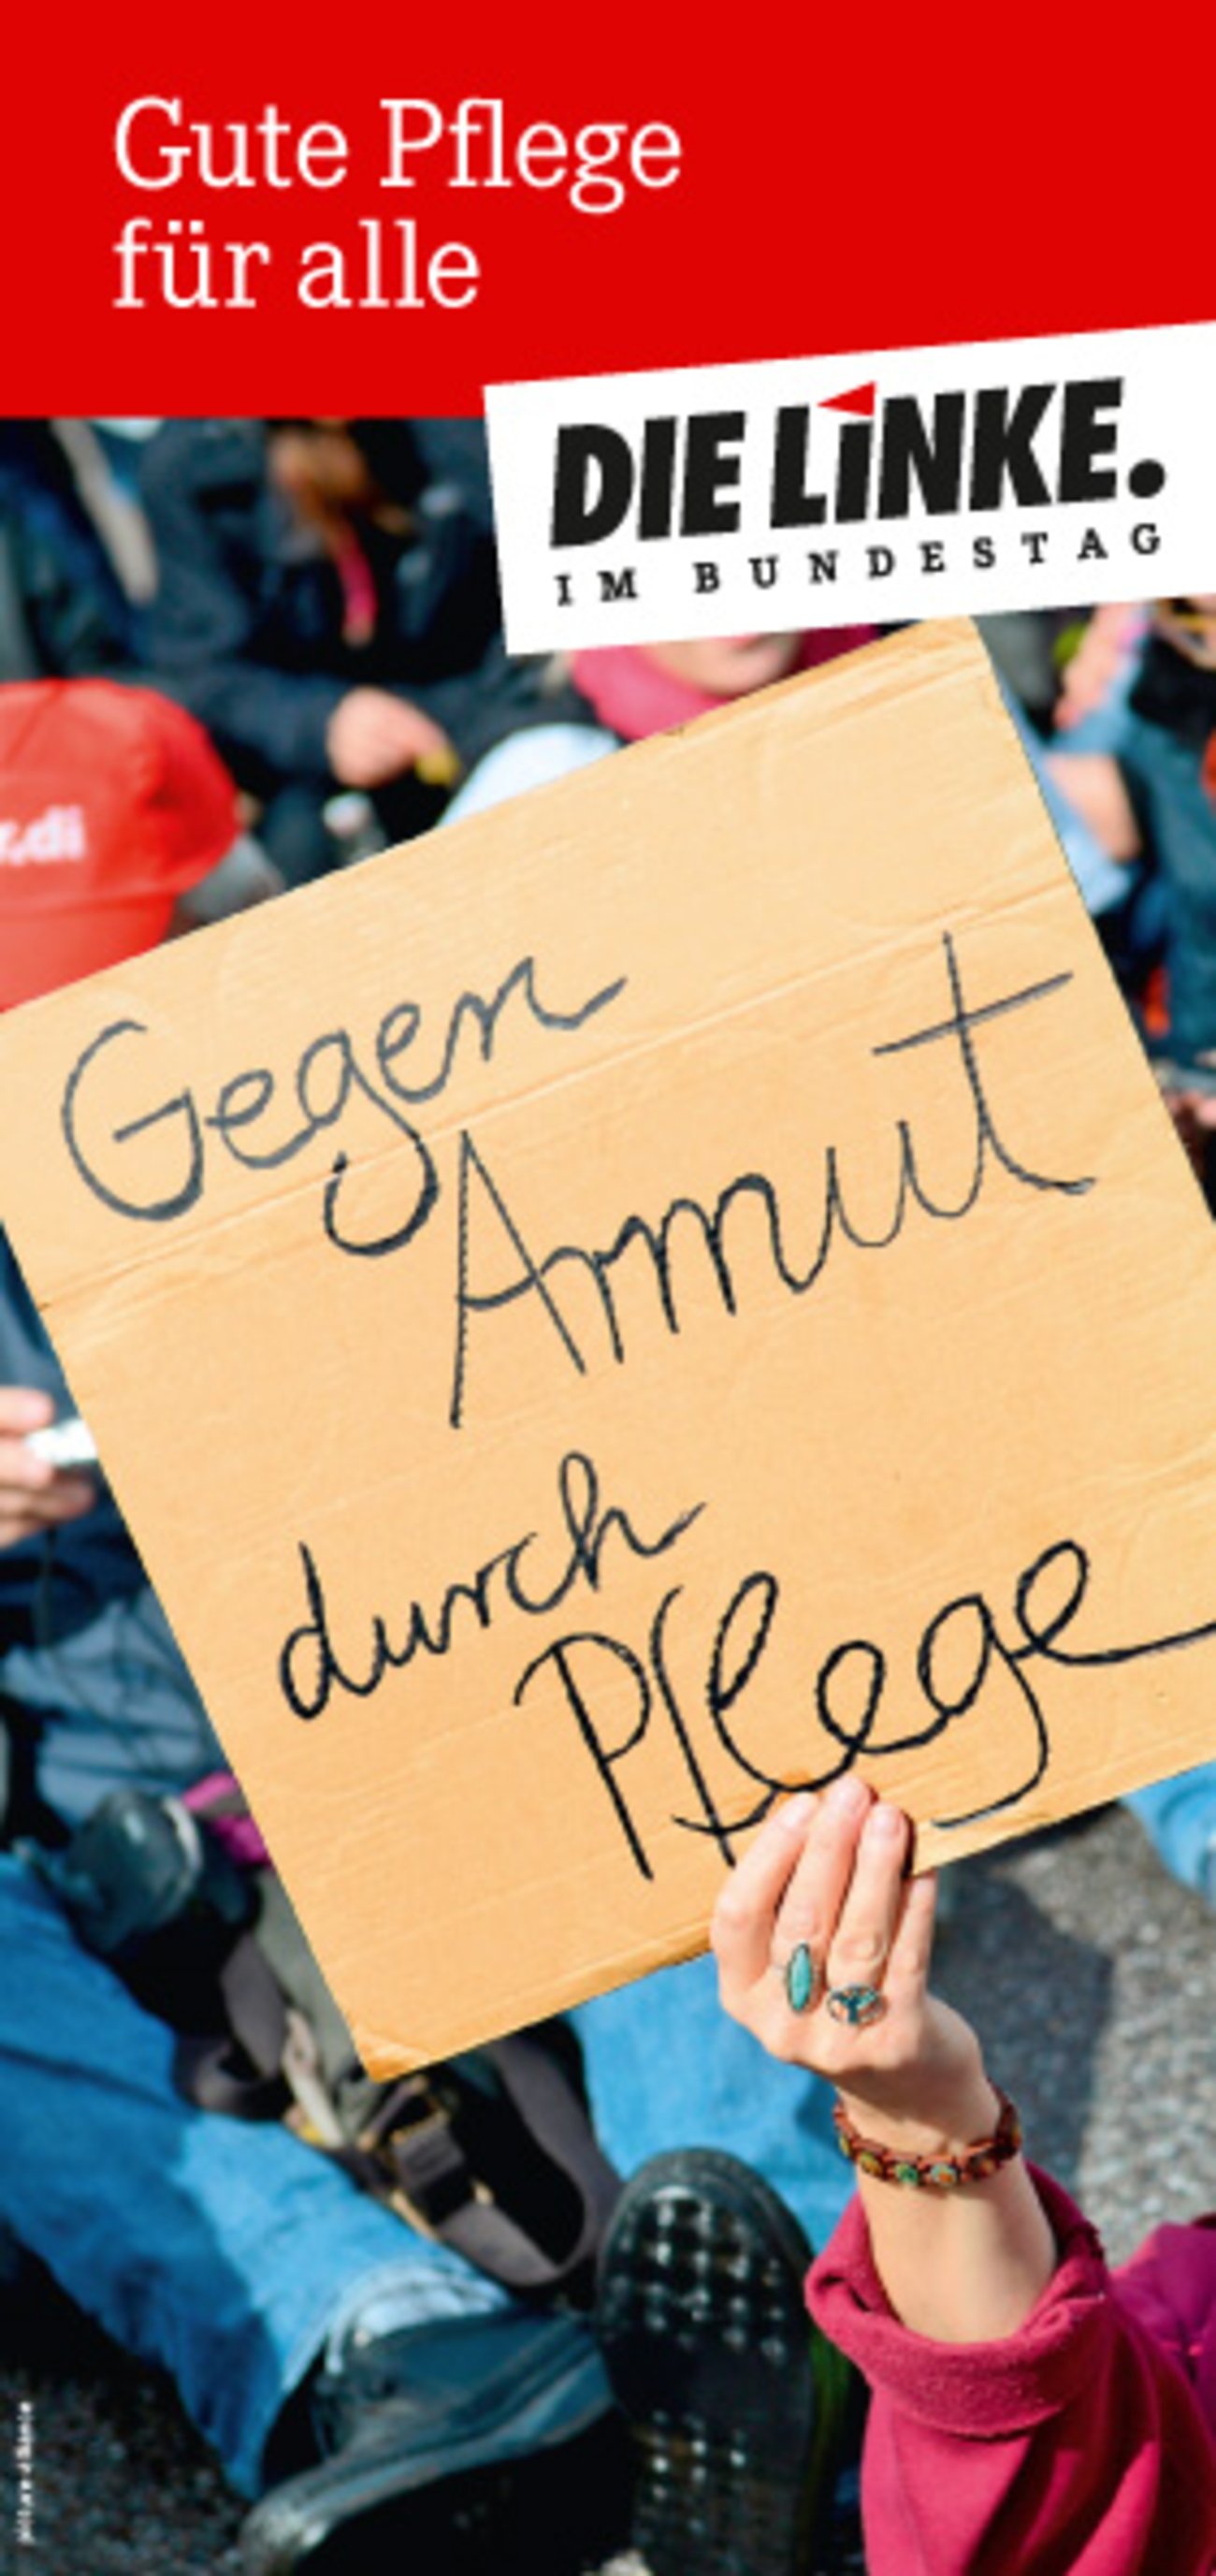 Gute Pflege
für alle
DIE LINKE.
IM BUNDESTAG
r.di
Gegen
Armut
durch
Pflege